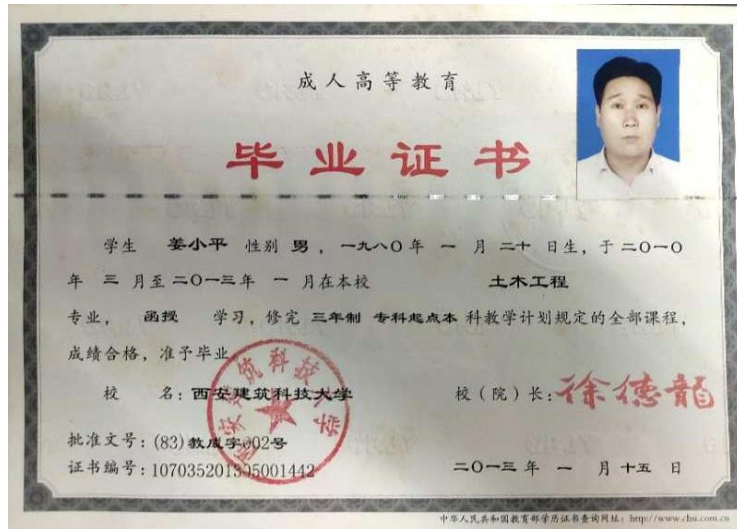 成人高等教育
毕业证书
学生 姜小平 性别 男，一九八〇年 一 月 二十 日生，于二〇一〇
年 三 月至二〇一三年 一 月在本校 土木工程
专业， 函授 学习，修完 三年制 专科起点本 科教学计划规定的全部课程，
成绩合格，准予毕业。
校 名：西安建筑科技大学
校（院）长：徐德龍
批准文号：(83)教成字002号
证书编号：107035201305001442
二〇一三年 一 月 十五 日
中华人民共和国教育部学历证书查询网址：http://www.chsi.com.cn